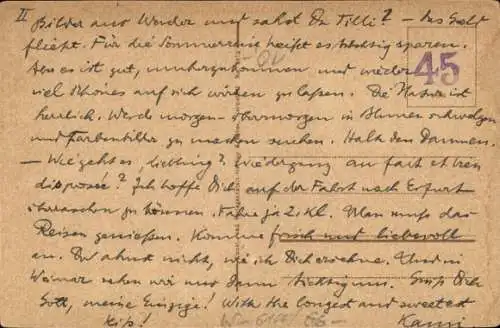 II
Bilder aus Werder und sahst Du Tilli? – Das Geld
fließt. Für die Sommerreise heißt es tüchtig sparen.
Aber es ist gut, umherzukommen und wieder
viel Schönes auf sich wirken zu lassen. Die Natur ist
herrlich. Werde morgen - übermorgen in Blumen schwelgen
und Farbenbilder zu machen suchen. Halt den Daumen.
– Wie geht es, Liebling? Niedergang an
disposée? Ich hoffe Dich auf der Fahrt nach Erfurt
überraschen zu können. Fahre ja 2. Kl. Man muss das
Reisen genießen. Komme frisch und liebevoll
an. Du ahnst nicht, wie ich Dich ersehne. Und in
Weimar sehen wir uns dann tüchtig um. Grüß Dich
Gott, meine Einzige! With the longest and sweetest
Kiss! Kassi
45